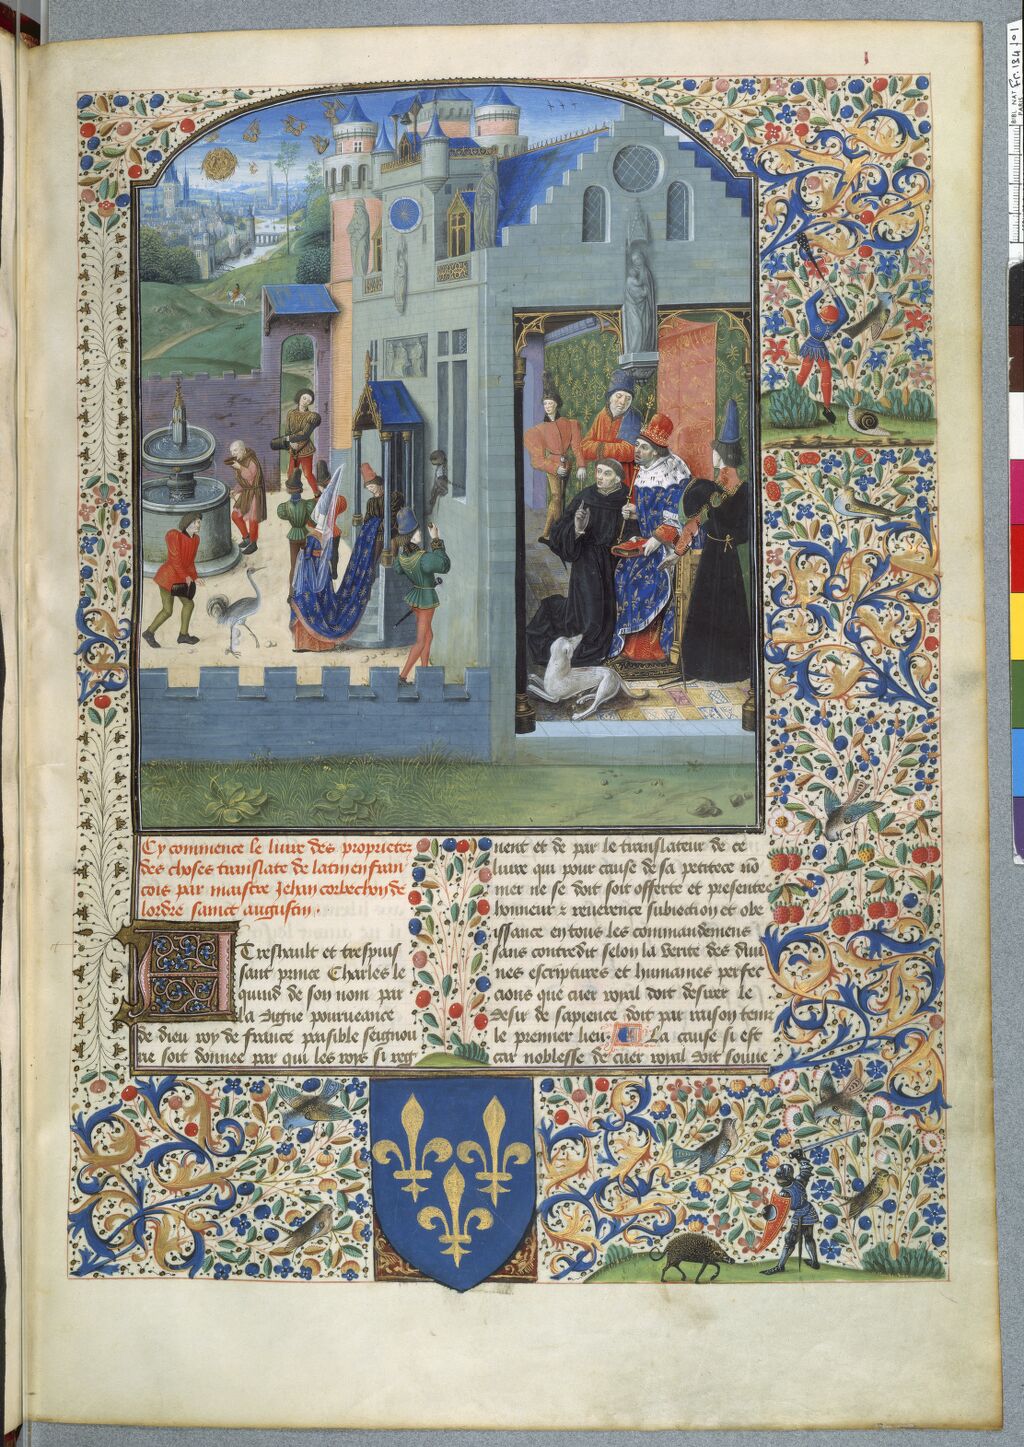 BIBL. NAT.
Fr. 134 fol
Cy commence le livre des proprietez
des choses translate de latin en fran
cois par maistre Jehan corbechon de
lordre sainct augustin.
A Treshault et trespuis
sant prince Charles le
quind de son nom par
la digne pourueance
de dieu roy de france paisible seignou
rie soit donnee par qui les roys si reg
nent et de par le translateur de ce
liure qui pour cause de sa petitece nō
mer ne se doit soit offerte et presentee
honneur reuerence subiection et obe
issance en tous les commandemens
sans contredit selon la verite des diui
nes escriptures et humaines perfec
cions que cuer royal doit desirer le
desir de sapience doit par raison tenir
le premier lieu. La cause si est
car noblesse de cuer royal doit souue